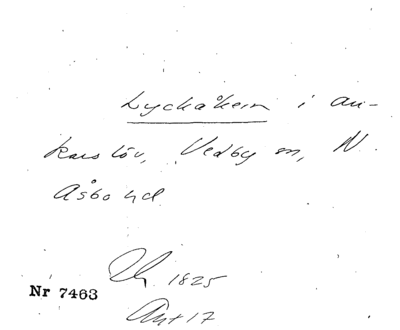 Lyckåkern i an-
karslöv, Vedby sn, N.
Åsbo hd
1825
Nr 7463
Akt 17